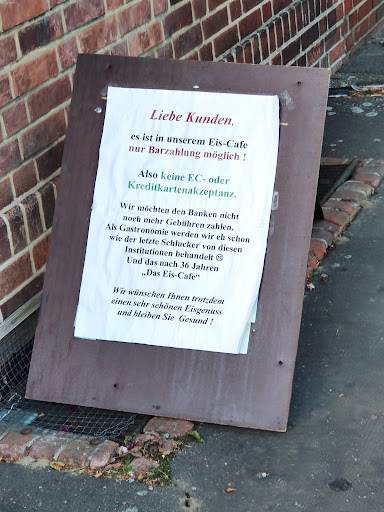 Liebe Kunden,
es ist in unserem Eis-Cafe
nur Barzahlung möglich !
Also keine EC- oder
Kreditkartenakzeptanz.
Wir möchten den Banken nicht
noch mehr Gebühren zahlen.
Als Gastronomie werden wir eh schon
wie der letzte Schlucker von diesen
Institutionen behandelt ☹
Und das nach 36 Jahren
„Das Eis-Cafe“
Wir wünschen Ihnen trotzdem
einen sehr schönen Eisgenuss
und bleiben Sie Gesund !